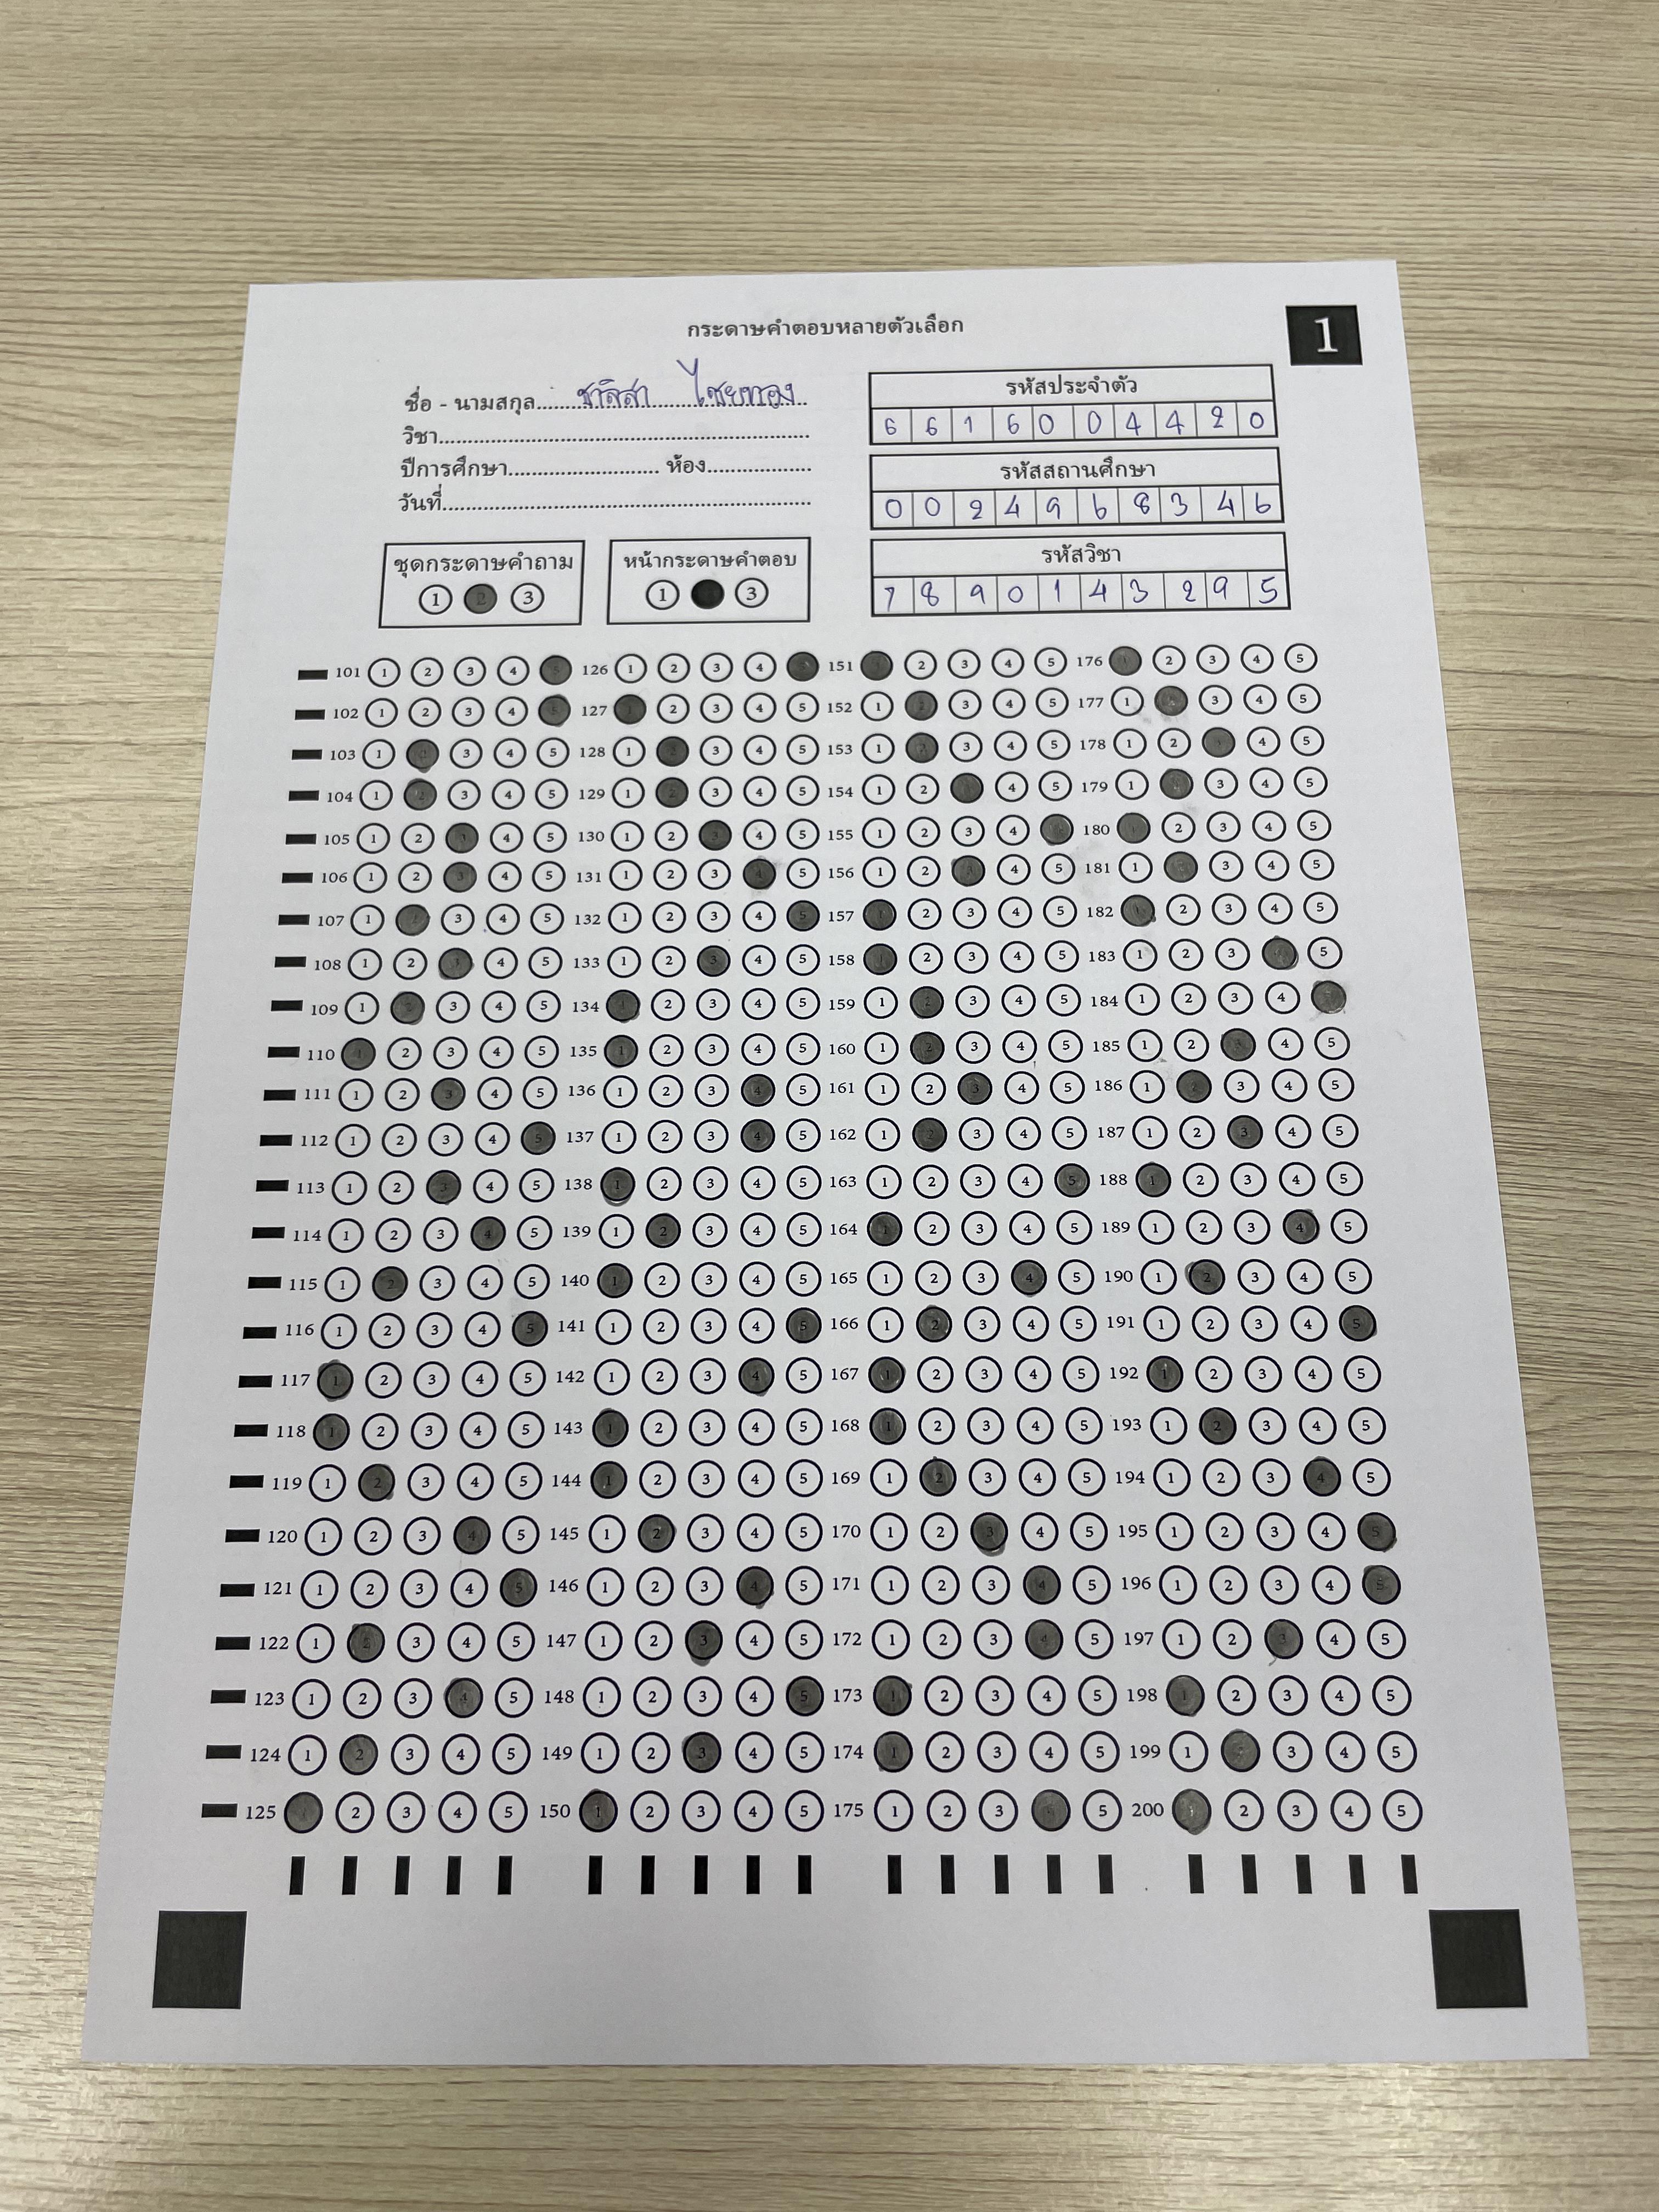 กระดาษคำตอบหลายตัวเลือก
1
ชื่อ - นามสกุล ชาลิสา ไชยทอง
วิชา
ปีการศึกษา ห้อง
วันที่
รหัสประจำตัว
6 6 1 6 0 0 4 4 2 0
รหัสสถานศึกษา
0 0 2 4 9 6 8 3 4 6
รหัสวิชา
7 8 9 0 1 4 3 2 9 5
ชุดกระดาษคำถาม
1 2 3
หน้ากระดาษคำตอบ
1 3
101 1 2 3 4 5 126 1 2 3 4 5 151 1 2 3 4 5 176 1 2 3 4 5
102 1 2 3 4 5 127 1 2 3 4 5 152 1 2 3 4 5 177 1 2 3 4 5
103 1 2 3 4 5 128 1 2 3 4 5 153 1 2 3 4 5 178 1 2 3 4 5
104 1 2 3 4 5 129 1 2 3 4 5 154 1 2 3 4 5 179 1 2 3 4 5
105 1 2 3 4 5 130 1 2 3 4 5 155 1 2 3 4 5 180 1 2 3 4 5
106 1 2 3 4 5 131 1 2 3 4 5 156 1 2 3 4 5 181 1 2 3 4 5
107 1 2 3 4 5 132 1 2 3 4 5 157 1 2 3 4 5 182 1 2 3 4 5
108 1 2 3 4 5 133 1 2 3 4 5 158 1 2 3 4 5 183 1 2 3 4 5
109 1 2 3 4 5 134 1 2 3 4 5 159 1 2 3 4 5 184 1 2 3 4 5
110 1 2 3 4 5 135 1 2 3 4 5 160 1 2 3 4 5 185 1 2 3 4 5
111 1 2 3 4 5 136 1 2 3 4 5 161 1 2 3 4 5 186 1 2 3 4 5
112 1 2 3 4 5 137 1 2 3 4 5 162 1 2 3 4 5 187 1 2 3 4 5
113 1 2 3 4 5 138 1 2 3 4 5 163 1 2 3 4 5 188 1 2 3 4 5
114 1 2 3 4 5 139 1 2 3 4 5 164 1 2 3 4 5 189 1 2 3 4 5
115 1 2 3 4 5 140 1 2 3 4 5 165 1 2 3 4 5 190 1 2 3 4 5
116 1 2 3 4 5 141 1 2 3 4 5 166 1 2 3 4 5 191 1 2 3 4 5
117 1 2 3 4 5 142 1 2 3 4 5 167 1 2 3 4 5 192 1 2 3 4 5
118 1 2 3 4 5 143 1 2 3 4 5 168 1 2 3 4 5 193 1 2 3 4 5
119 1 2 3 4 5 144 1 2 3 4 5 169 1 2 3 4 5 194 1 2 3 4 5
120 1 2 3 4 5 145 1 2 3 4 5 170 1 2 3 4 5 195 1 2 3 4 5
121 1 2 3 4 5 146 1 2 3 4 5 171 1 2 3 4 5 196 1 2 3 4 5
122 1 2 3 4 5 147 1 2 3 4 5 172 1 2 3 4 5 197 1 2 3 4 5
123 1 2 3 4 5 148 1 2 3 4 5 173 1 2 3 4 5 198 1 2 3 4 5
124 1 2 3 4 5 149 1 2 3 4 5 174 1 2 3 4 5 199 1 2 3 4 5
125 1 2 3 4 5 150 1 2 3 4 5 175 1 2 3 4 5 200 1 2 3 4 5